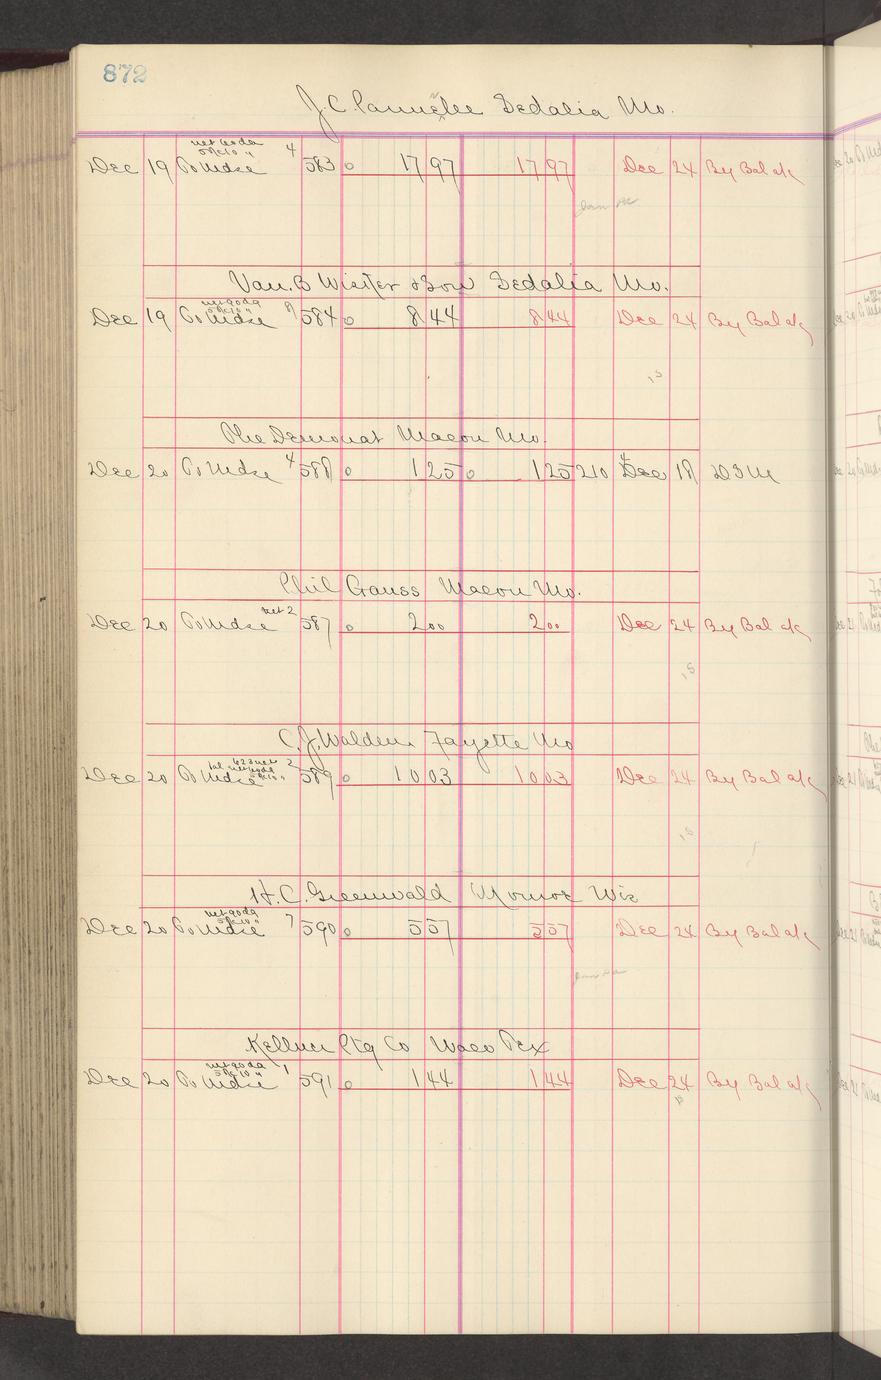 872
J.C. Parmelee Sedalia Mo.
net 60 da
5% 10 "
Dec 19 To Mdse 4 583 0 17 97 17 97 Dec 24 By Bal a/c
Van. B Sedalia Mo.
net 90 da
5% 10 "
Dec 19 To Mdse 584 0 8 44 8 44 Dec 24 By Bal a/c
The Democrat Macon Mo.
Dec 20 To Mdse 4 588 0 1 25 0 1 25 210 Dec 18 D3M
Phil Gauss Macon Mo.
net 2
Dec 20 To Mdse 587 0 2 00 2 00 Dec 24 By Bal a/c
C.J. Walden Fayette Mo
Dec 20 To Mdse 2 589 0 10 03 10 03 Dec 24 By Bal a/c
H.C. Greenwald Monroe Wis
net 90 da
5% 10 "
Dec 20 To Mdse 7 590 0 5 57 5 57 Dec 24 By Bal a/c
Kellner Ptg Co Waco Tex
net 90 da
5% 10 "
Dec 20 To Mdse 1 591 0 1 44 1 44 Dec 24 By Bal a/c